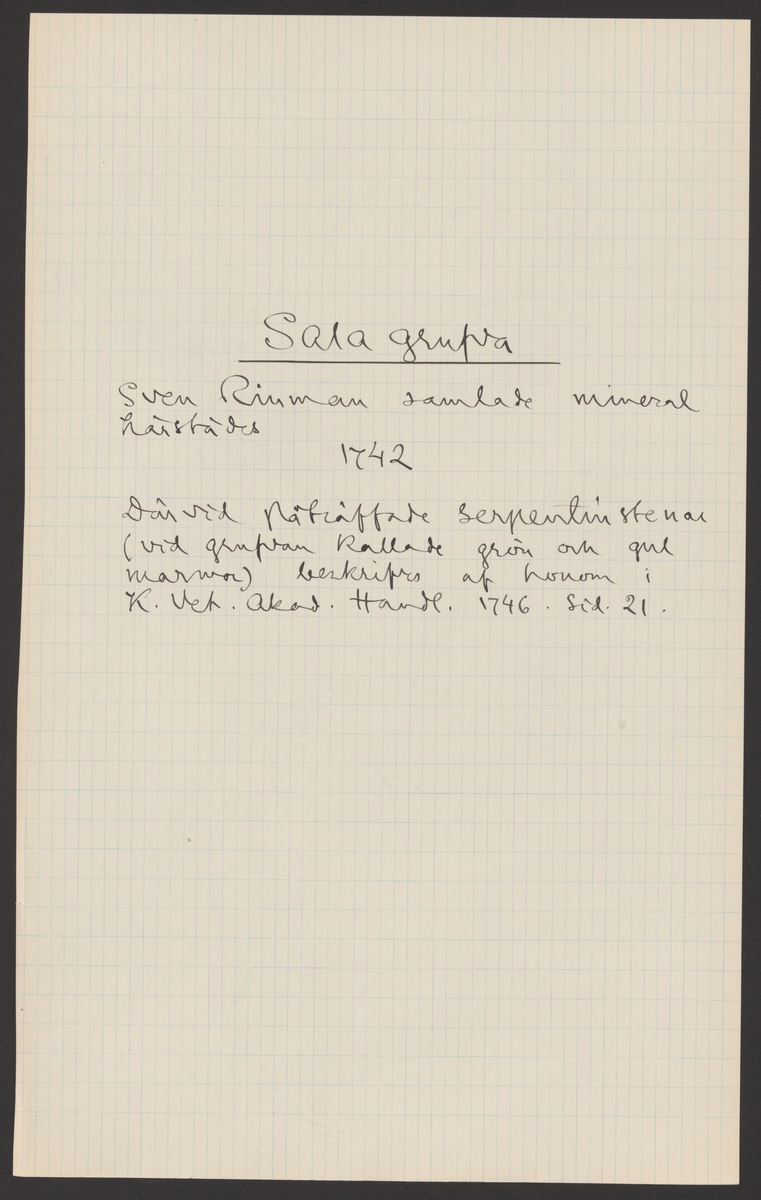 Sala grufva
Sven Rinman samlade mineral
härstädes
1742
Därvid påträffade serpentinstenar
(vid grufvan kallade grön och gul
marmor) beskrifvs af honom i
K. Vet. Akad. Handl. 1746. Sid. 21.